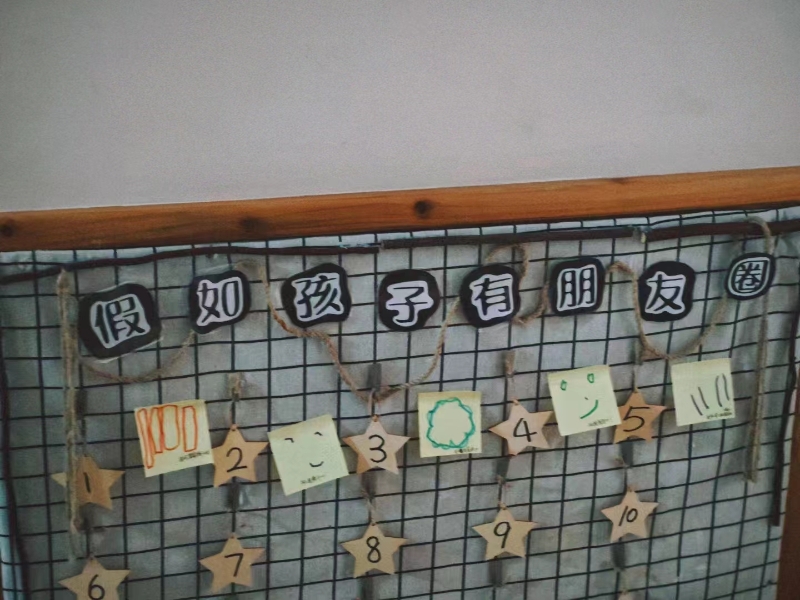 假如孩子有朋友圈
1 2 3 4 5
6 7 8 9 10